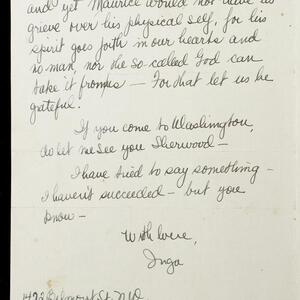 and yet Maurice would not have us
grieve over his physical self, for his
spirit goes forth in our hearts and
no man, nor the so called God can
take it from us — For that let us be
grateful.
If you come to Washington,
do let me see you Sherwood —
I have tried to say something —
I haven't succeeded — but you
know —
With love,
Inga
1422 Belmont St. N.W.